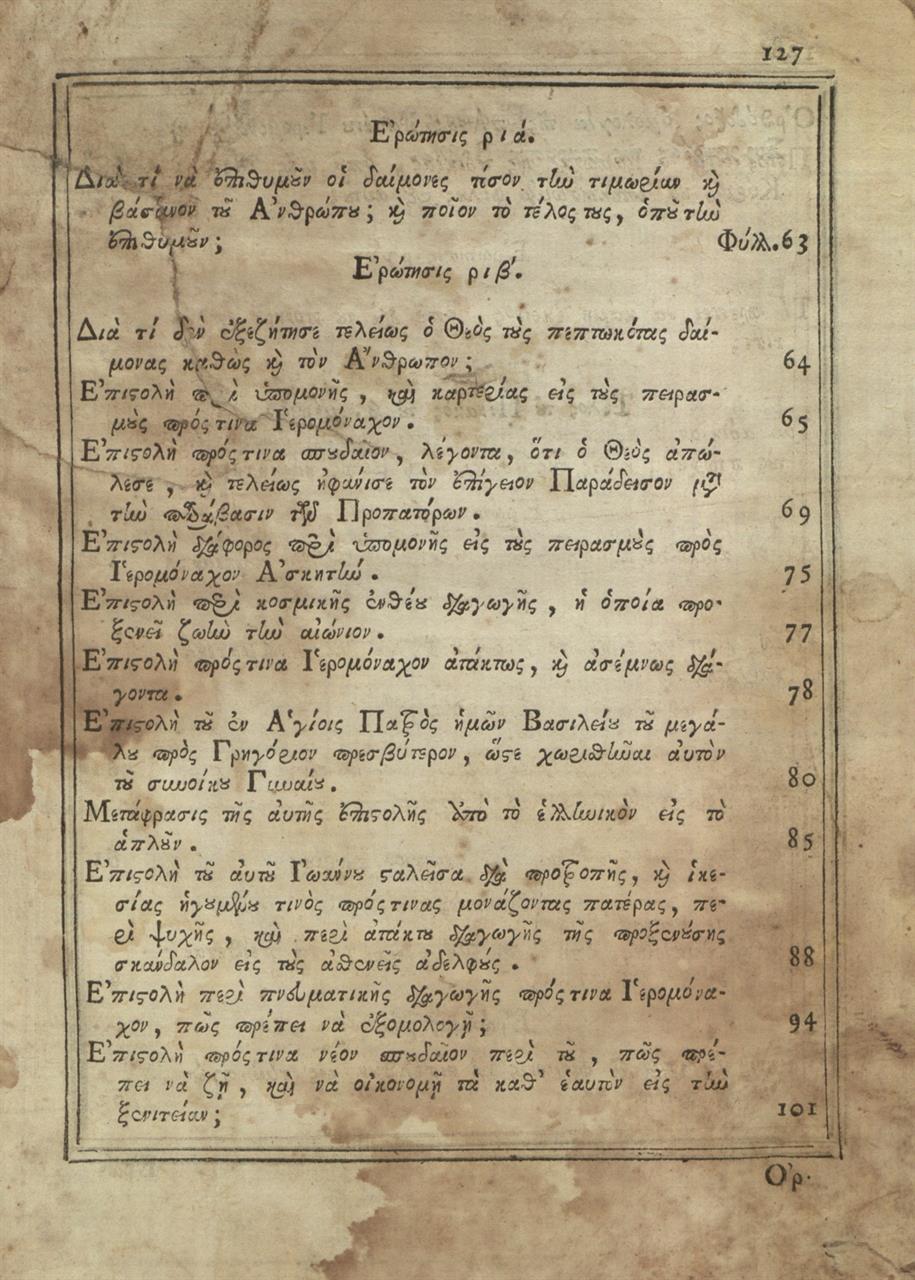 127
Ἐρώτησις ριά.
Διὰ τί νὰ ἐπιθυμοῦν οἱ δαίμονες τόσον τὴν τιμωρίαν καὶ
βάσανον τοῦ Ἀνθρώπου; καὶ ποῖον τὸ τέλος τους, ὁποῦ τὴν
ἐπιθυμοῦν; Φύλλ.63
Ἐρώτησις ριβ´.
Διὰ τί δὲν ἐξεζήτησε τελείως ὁ Θεὸς τοὺς πεπτωκότας δαί-
μονας καθὼς καὶ τὸν Ἄνθρωπον; 64
Ἐπιστολὴ περὶ ὑπομονῆς, καὶ καρτερίας εἰς τοὺς πειρασ-
μοὺς πρός τινα Ἱερομόναχον. 65
Ἐπιστολὴ πρός τινα σπουδαῖον, λέγοντα, ὅτι ὁ Θεὸς ἀπώ-
λεσε, καὶ τελείως ἠφάνισε τὸν ἐπίγειον Παράδεισον μετὰ
τὴν παράβασιν τῶν Προπατόρων. 69
Ἐπιστολὴ διάφορος περὶ ὑπομονῆς εἰς τοὺς πειρασμοὺς πρὸς
Ἱερομόναχον Ἀσκητήν. 75
Ἐπιστολὴ περὶ κοσμικῆς ἐνθέου διαγωγῆς, ἡ ὁποία προ-
ξενεῖ ζωὴν τὴν αἰώνιον. 77
Ἐπιστολὴ πρός τινα Ἱερομόναχον ἀτάκτως, καὶ ἀσέμνως διά-
γοντα. 78
Ἐπιστολὴ τοῦ ἐν Ἁγίοις Πατρὸς ἡμῶν Βασιλείου τοῦ μεγά-
λου πρὸς Γρηγόριον πρεσβύτερον, ὥστε χωρισθῆναι αὐτὸν
τοῦ συνοίκου Γυναίου. 80
Μετάφρασις τῆς αὐτῆς ἐπιστολῆς ἀπὸ τὸ ἑλληνικὸν εἰς τὸ
ἁπλοῦν. 85
Ἐπιστολὴ τοῦ αὐτοῦ Ἰωάννου σταλεῖσα διὰ προτροπῆς, καὶ ἱκε-
σίας ἡγουμένου τινὸς πρός τινας μονάζοντας πατέρας, πε-
ρὶ ψυχῆς, καὶ περὶ ἀτάκτου διαγωγῆς τῆς προξενούσης
σκάνδαλον εἰς τοὺς ἀσθενεῖς ἀδελφούς. 88
Ἐπιστολὴ περὶ πνευματικῆς διαγωγῆς πρός τινα Ἱερομόνα-
χον, πῶς πρέπει νὰ ἐξομολογῇ; 94
Ἐπιστολὴ πρός τινα νέον σπουδαῖον περὶ τοῦ, πῶς πρέ-
πει νὰ ζῇ, καὶ νὰ οἰκονομῇ τὰ καθ᾽ ἑαυτὸν εἰς τὴν
ξενιτείαν; 101
Ὀρ-